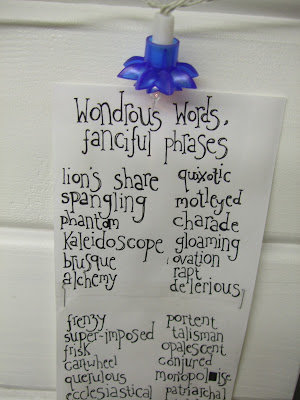 Wondrous Words,
fanciful phrases
lion's share
spangling
phantom
kaleidoscope
brusque
alchemy
quixotic
motleyed
charade
gloaming
ovation
rapt
delerious
frenzy
super-imposed
frisk
cartwheel
querulous
ecclesiastical
portent
talisman
opalescent
conjured
patriarchal